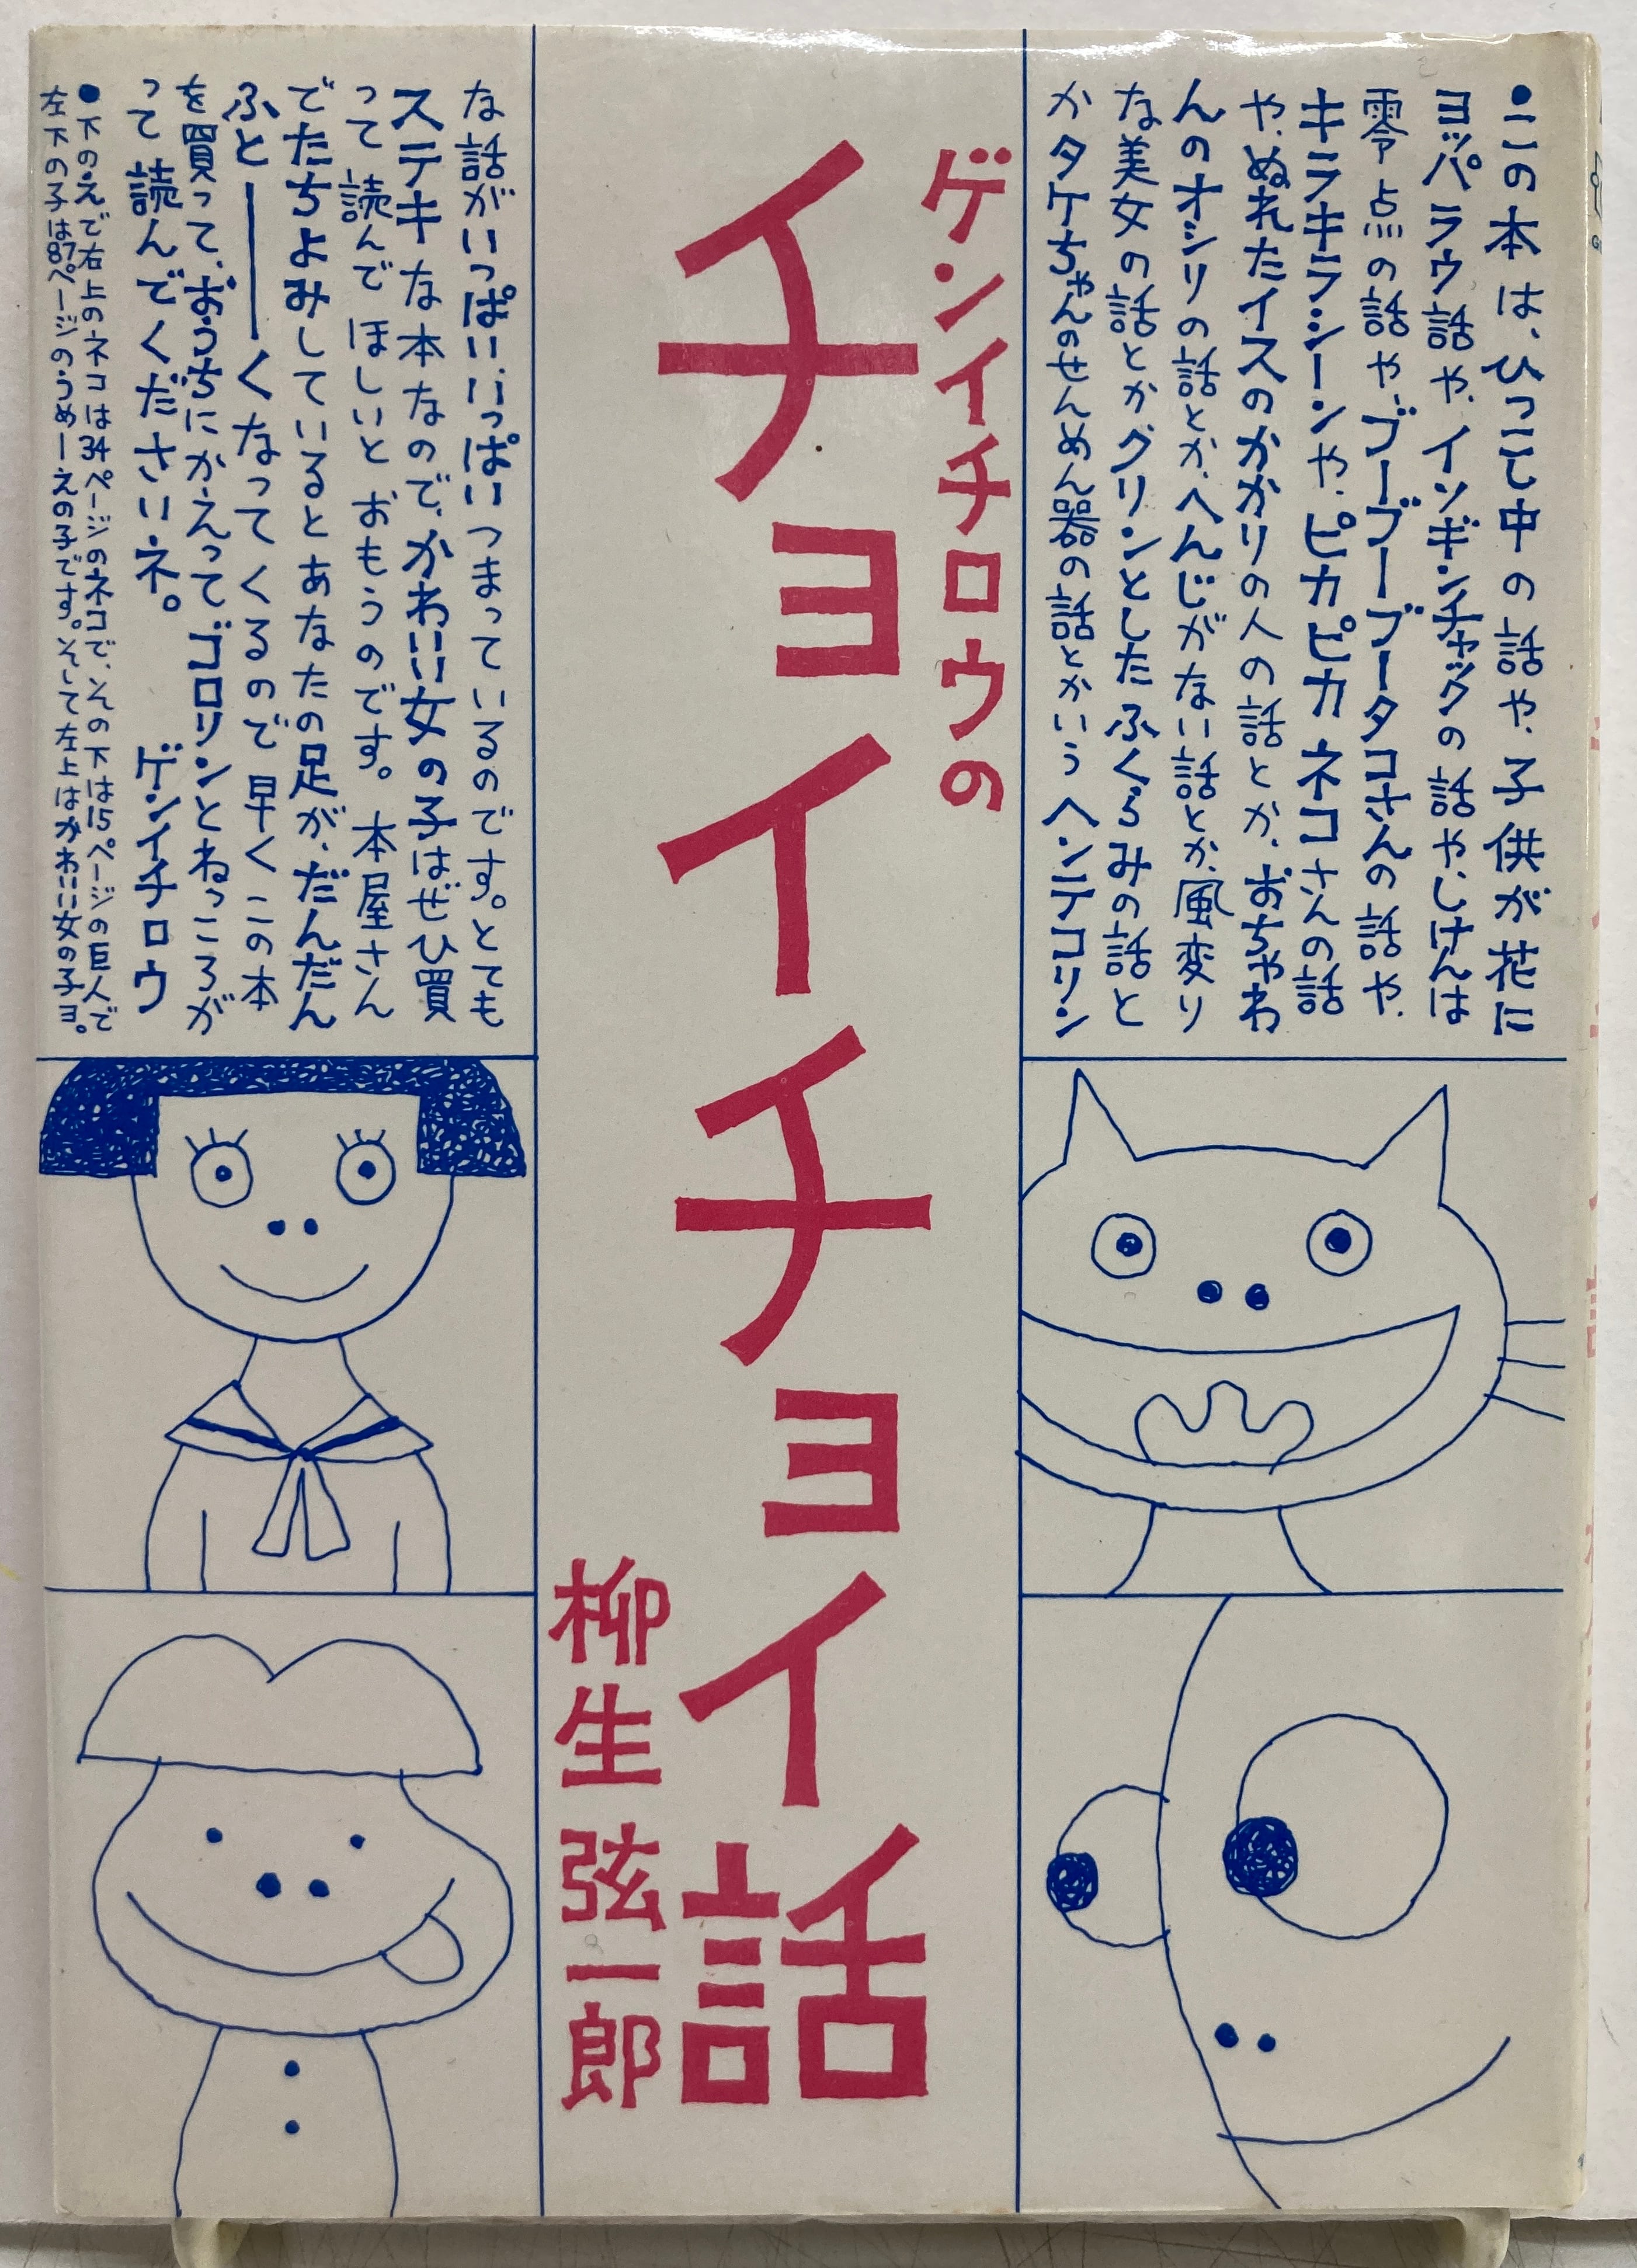 ●この本は、ひっこし中の話や、子供が花に
ヨッパラウ話や、イソギンチャックの話や、しけんは
零点の話や、ブーブーブータコさんの話や、
キラキラシーンや、ピカピカネコさんの話
や、ぬれたイスのかかりの人の話とか、おちゃわ
んのオシリの話とか、へんじがない話とか、風変り
な美女の話とかグリンとしたふくらみの話と
かタケちゃんのせんめん器の話とかいうヘンテコリン
ゲンイチロウの
チョイチョイ話
柳生弦一郎
な話がいっぱい、いっぱいつまっているのです。とても
ステキな本なので、かわいい女の子はぜひ買
って読んでほしいとおもうのです。本屋さん
でたちよみしているとあなたの足が、だんだん
ふと――くなってくるので早くこの本
を買って、おうちにかえってゴロリンとねっころが
って読んでくださいネ。 ゲンイチロウ
●下のえで右上のネコは34ページのネコで、その下は15ページの巨人で
左下の子は87ページのうめーえの子です。そして左上はかわいい女の子ヨ。